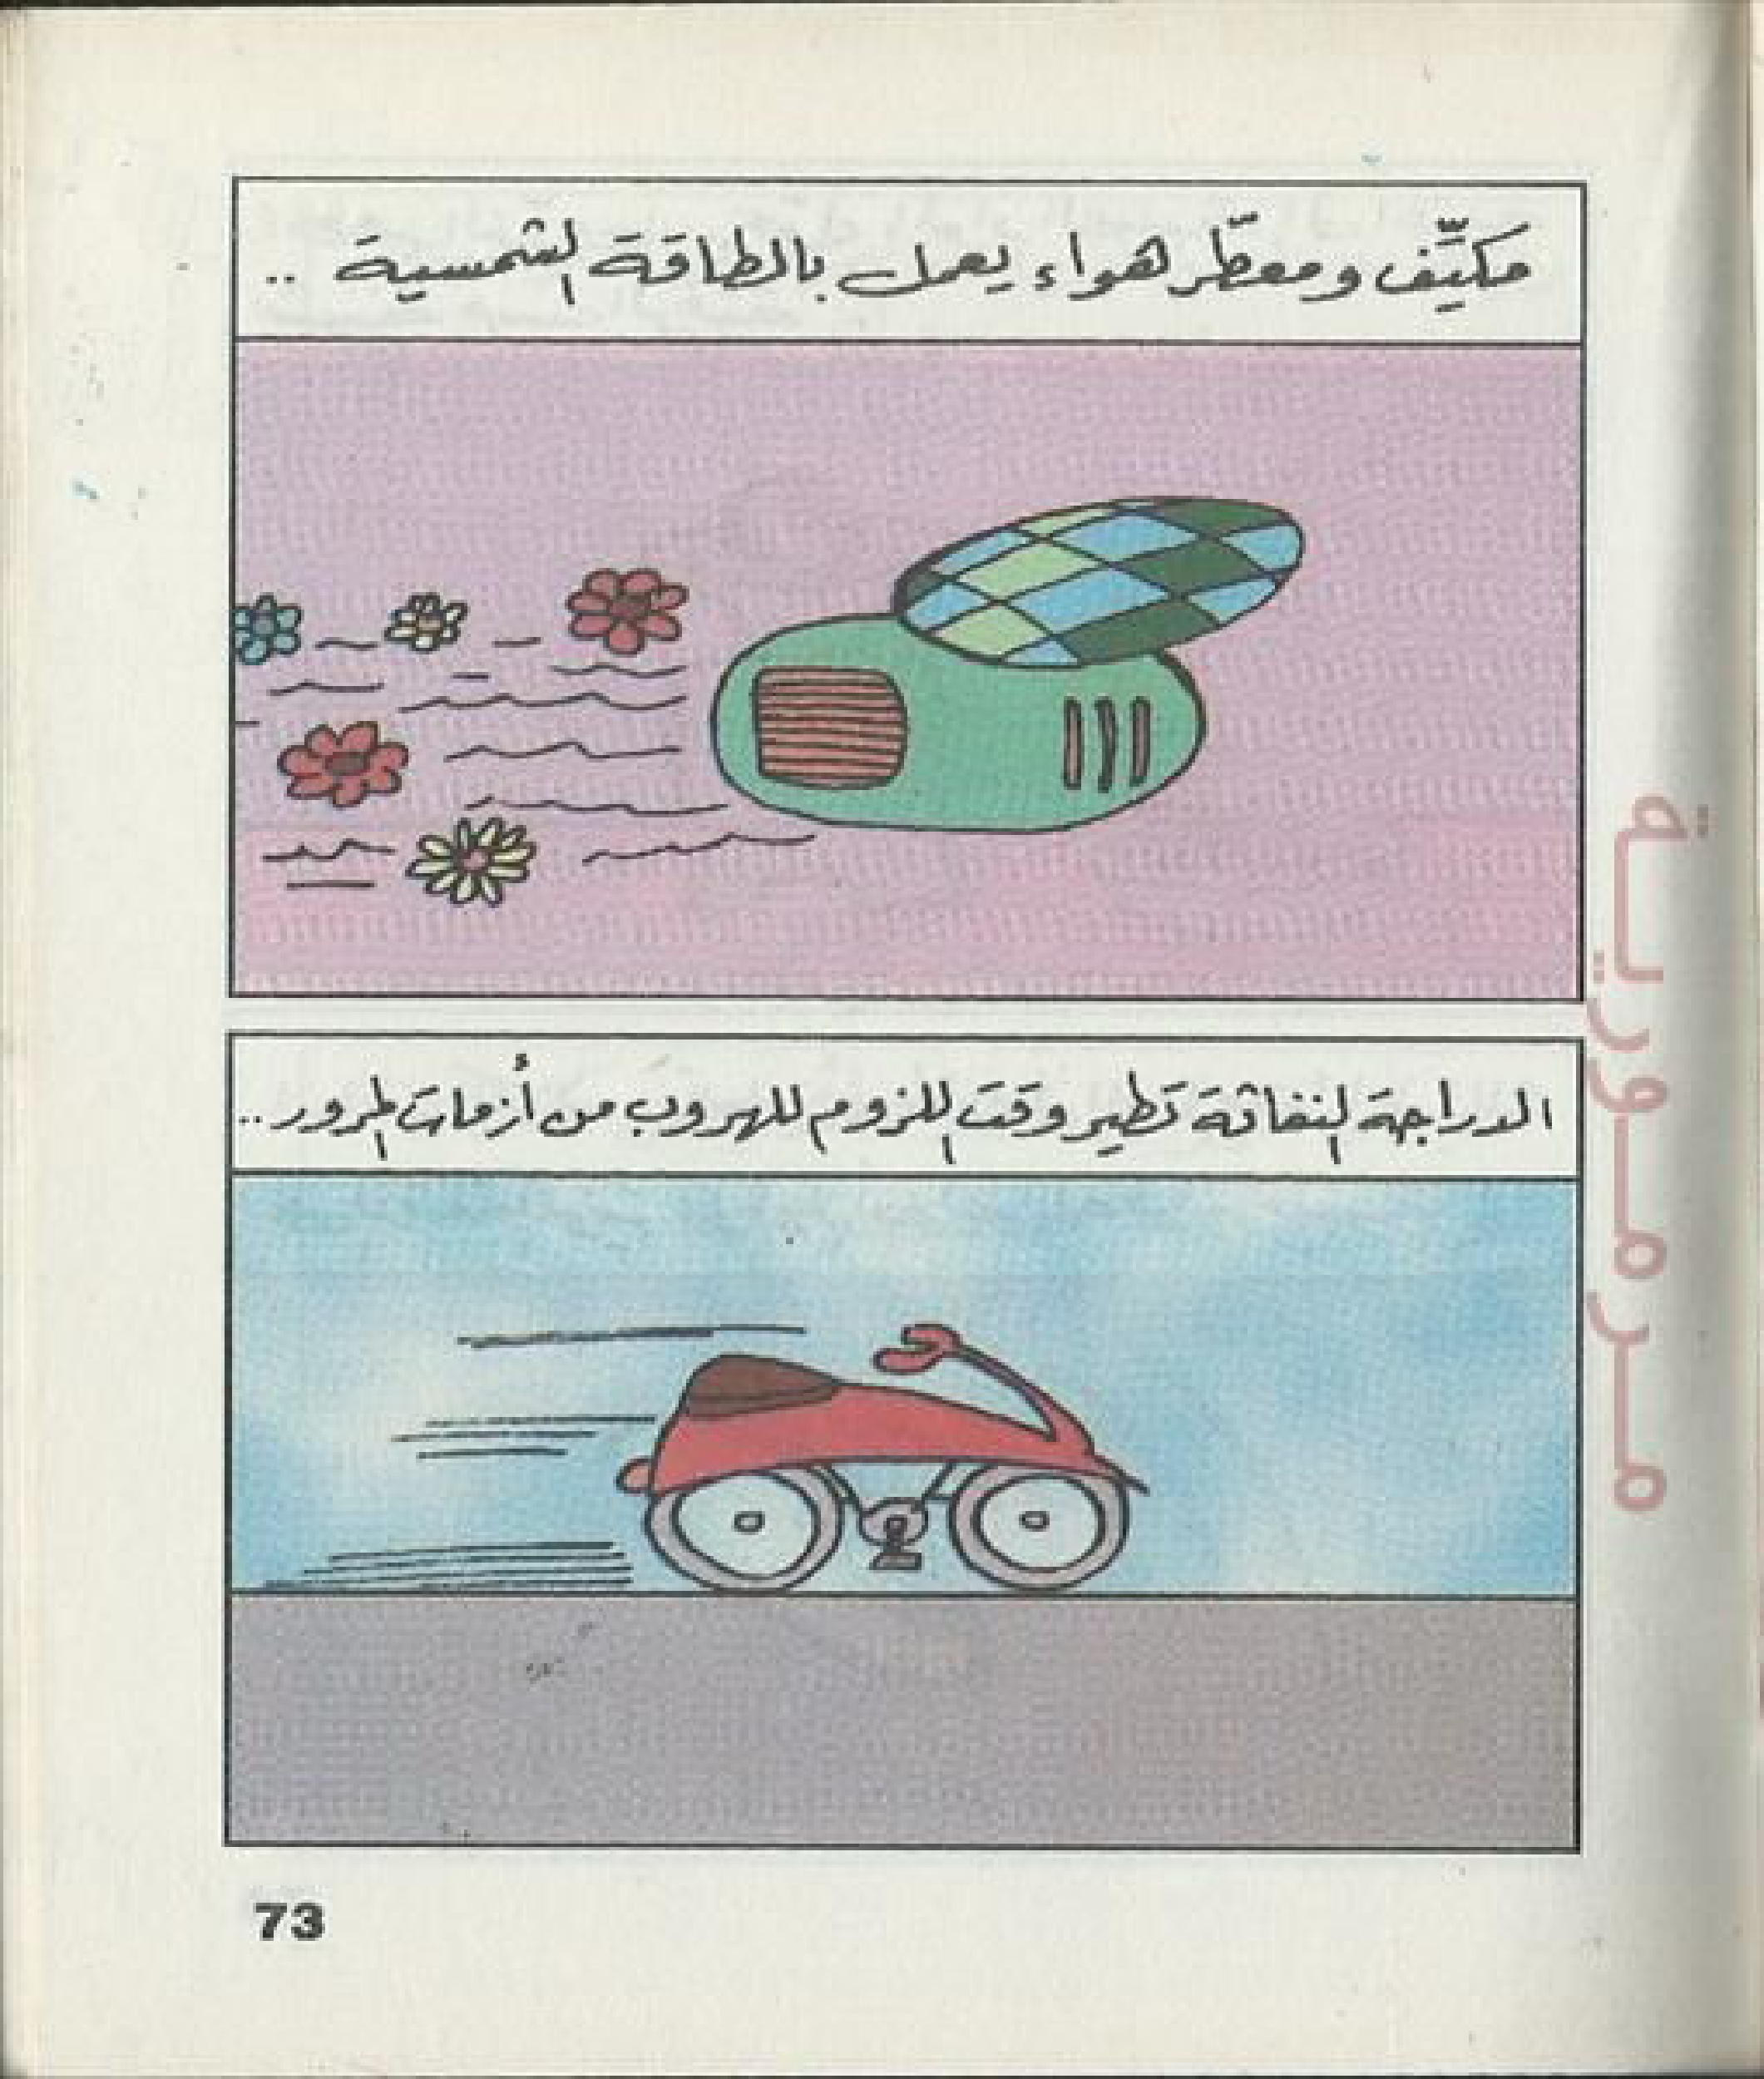 مكيّف ومعطّر هواء يعمل بالطاقة الشمسية ..
الدراجة النفاثة تطير وقت اللزوم للهروب من أزمات المرور ..
73
مرمورية